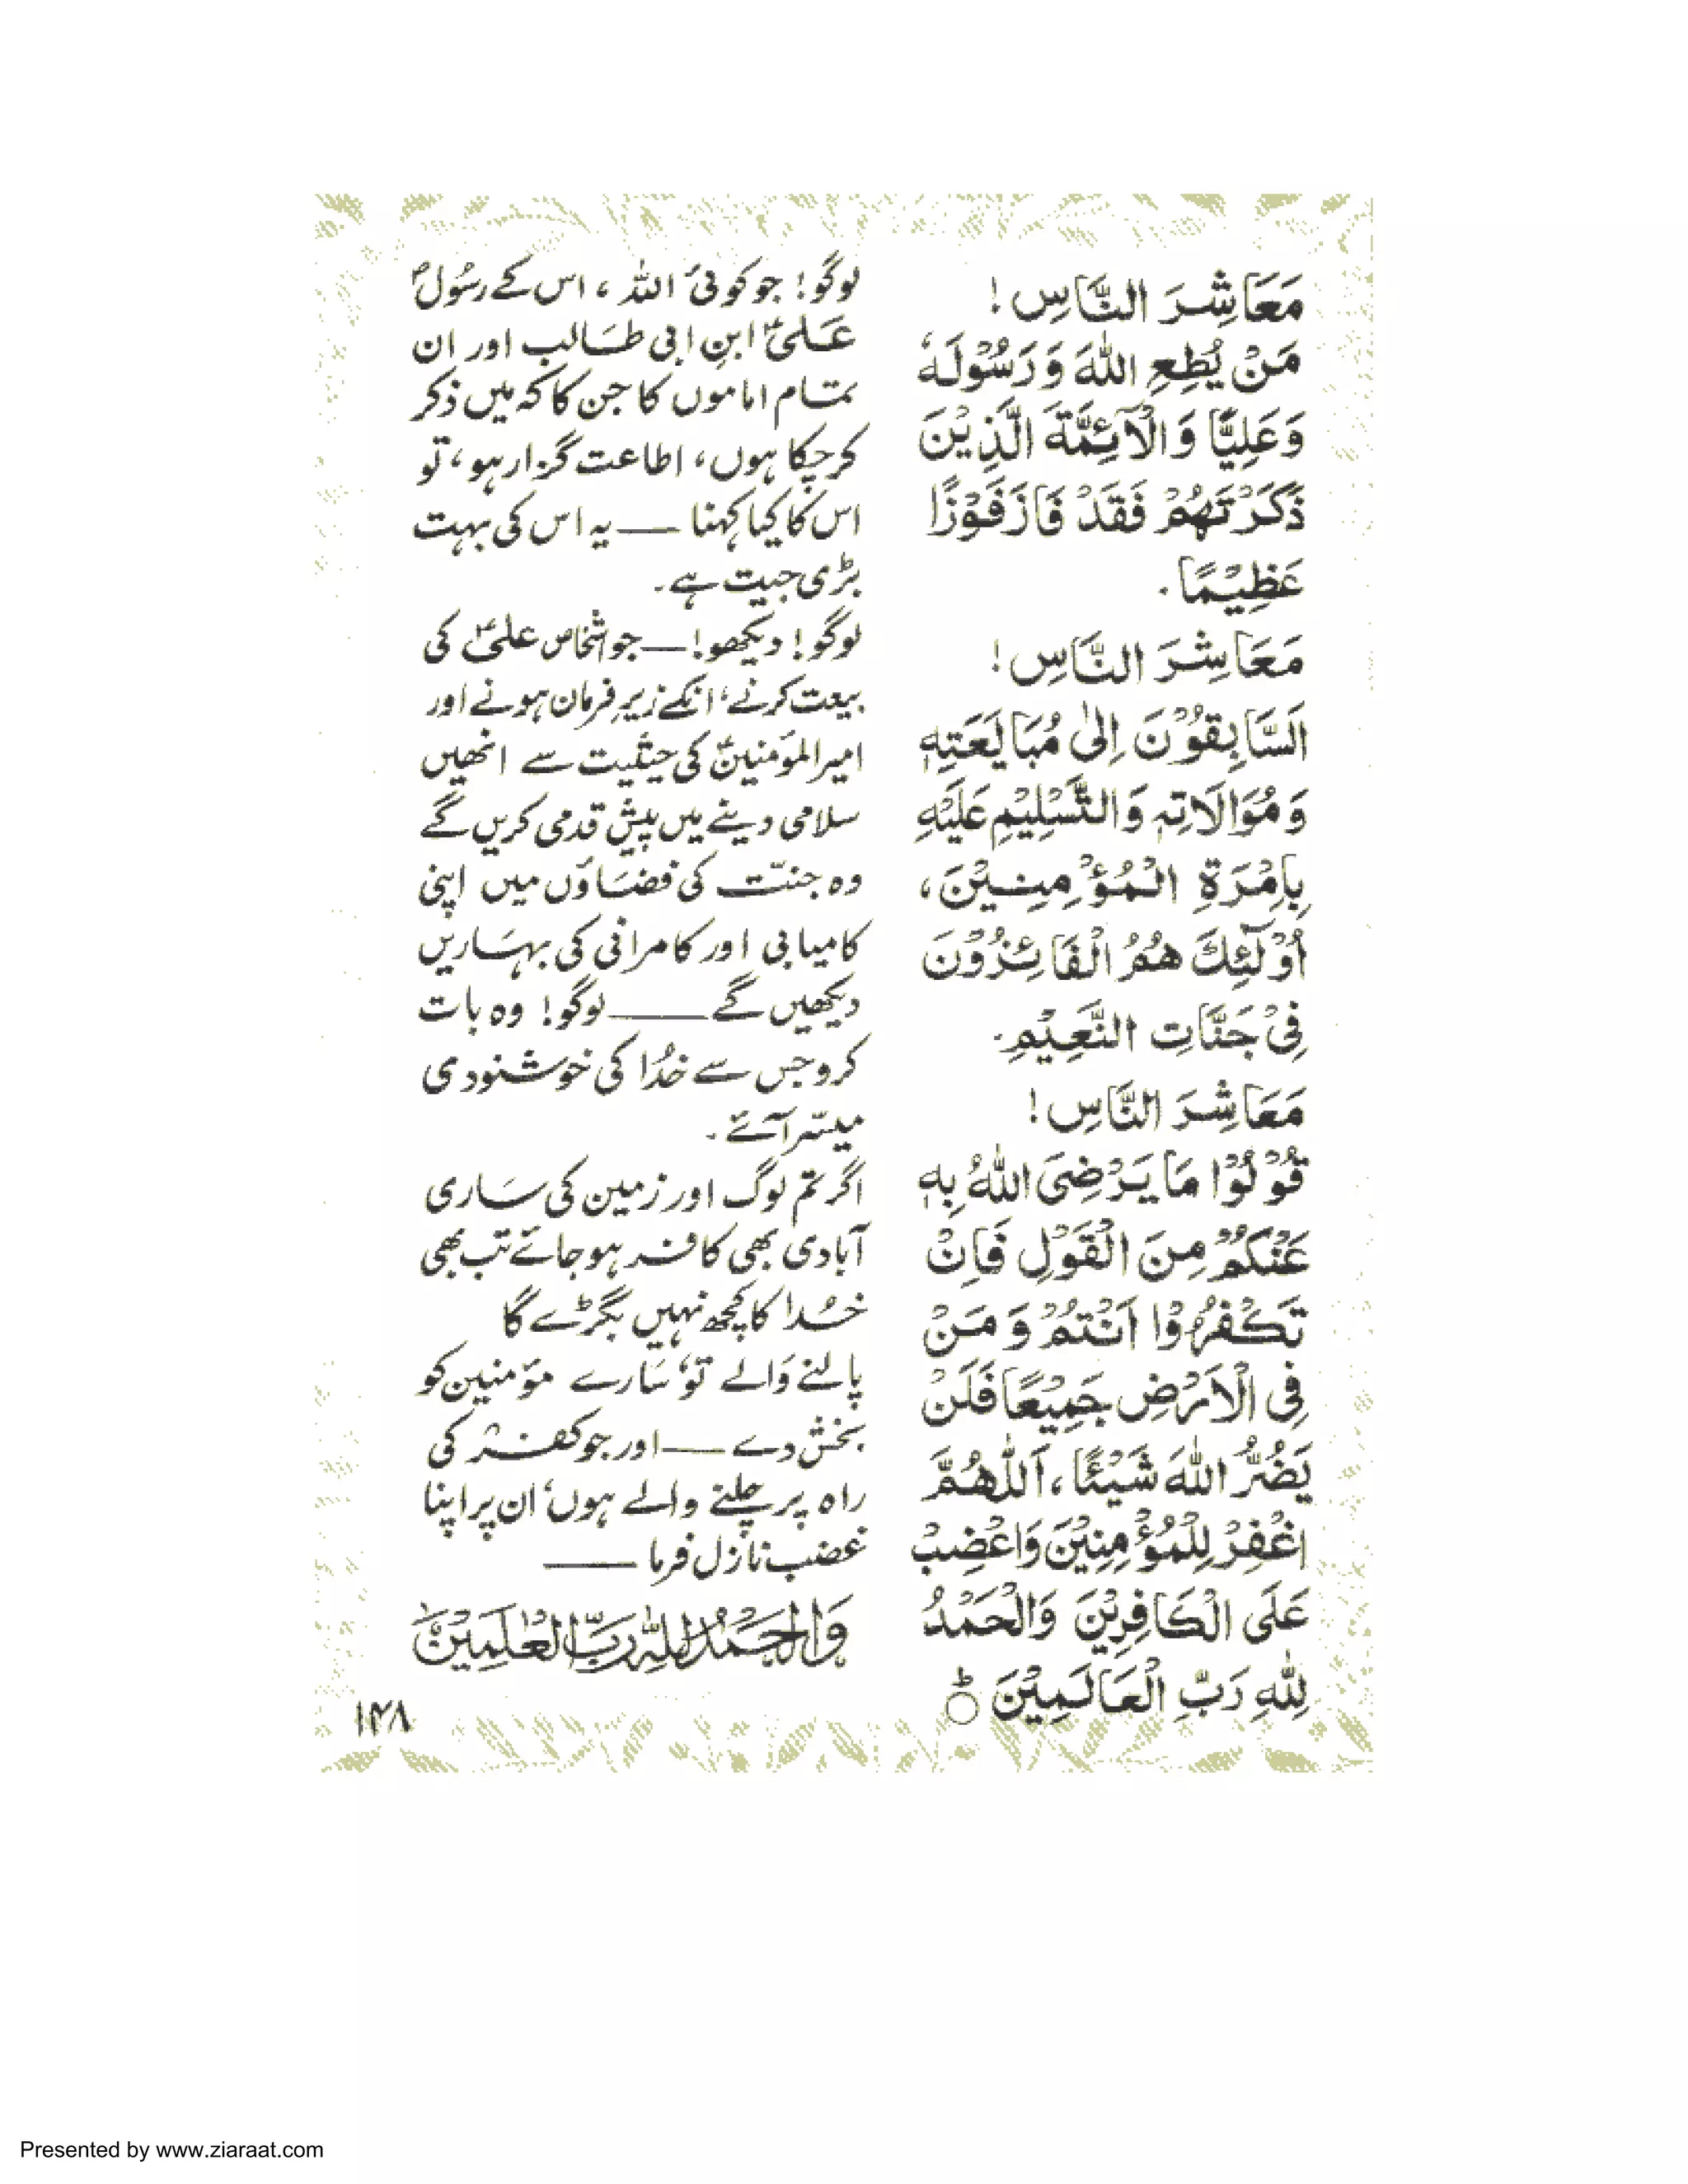 مَعَاشِرَ النَّاسِ!
مَنْ يُطِعِ اللهَ وَ رَسُوْلَهٗ
وَعَلِيًّا وَ الْاَئِمَّةَ الَّذِيْنَ
ذَكَرْتَهُمْ فَقَدْ فَازَ فَوْزًا
عَظِيْمًا.
مَعَاشِرَ النَّاسِ!
اَلسَّابِقُوْنَ اِلٰى مُبَايَعَتِهٖ
وَ مُوَالَاتِهٖ وَ التَّسْلِيْمِ عَلَيْهِ
بِاِمْرَةِ الْمُؤْمِنِيْنَ،
اُوْلٰٓئِكَ هُمُ الْفَائِزُوْنَ
فِىْ جَنَّاتِ النَّعِيْمِ.
مَعَاشِرَ النَّاسِ!
قُوْلُوْا مَا يَرْضِىَ اللهُ بِهٖ
عَنْكُمْ مِنَ الْقَوْلِ فَاِنْ
تَكْفُرُوْا اَنْتُمْ وَ مَنْ
فِى الْاَرْضِ جَمِيْعًا فَلَنْ
يَضُرُّ اللهَ شَيْئًا، اَللّٰهُمَّ
اغْفِرْ لِلْمُؤْمِنِيْنَ وَاغْضِبْ
عَلَى الْكَافِرِيْنَ وَالْحَمْدُ
لِلّٰهِ رَبِّ الْعَالَمِيْنَ ○ؕ
لوگو! جو کوئی اللہ، اس کے رسُولؐ
علیؑ ابنِ ابی طالب اور ان
تمام اماموں کا جن کا کہ میں ذکر
کرچکا ہوں، اطاعت گزار ہو، تو
اس کا کیا کہنا — یہ اس کی بہت
بڑی جیت ہے۔
لوگو! دیکھو! — جو اشخاص علیؑ کی
بیعت کرنے، انکے زیرِ فرمان ہونے اور
امیر المؤمنینؑ کی حیثیت سے انھیں
سلامی دینے میں پیش قدمی کریں گے
وہ جنّت کی فضاؤں میں اپنی
کامیابی اور کامرانی کی بہاریں
دیکھیں گے — لوگو! وہ بات
کرو جس سے خُدا کی خوشنودی
میسّر آئے۔
اگر تم لوگ اور زمین کی ساری
آبادی بھی کافر ہو جائے تب بھی
خُدا کا کچھ نہیں بگڑے گا
پالنے والے تو، سارے مؤمنین کو
بخش دے — اور جو کفر کی
راہ پر چلنے والے ہوں، ان پر اپنا
غضب نازل فرما —
وَالْحَمْدُ لِلّٰهِ رَبِّ الْعٰلَمِيْنَ
۱۴۸
Presented by www.ziaraat.com